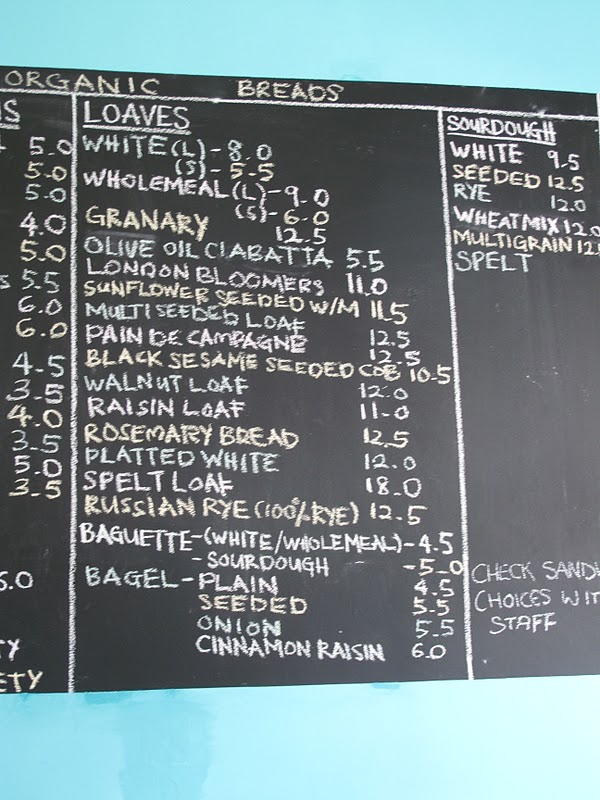 ORGANIC BREADS
5.0
5.0
5.0
4.0
5.0
5.5
6.0
6.0
4.5
3.5
4.0
3.5
5.0
3.5
LOAVES
WHITE (L) - 8.0
(S) - 5.5
WHOLEMEAL (L) - 9.0
(S) - 6.0
GRANARY 12.5
OLIVE OIL CIABATTA 5.5
LONDON BLOOMERS 11.0
SUNFLOWER SEEDED W/M 11.5
MULTISEEDED LOAF 12.5
PAIN DE CAMPAGNE 12.5
BLACK SESAME SEEDED COB 10.5
WALNUT LOAF 12.0
RAISIN LOAF 11.0
ROSEMARY BREAD 12.5
PLATTED WHITE 12.0
SPELT LOAF 18.0
RUSSIAN RYE (100% RYE) 12.5
BAGUETTE - (WHITE/WHOLEMEAL) - 4.5
- SOURDOUGH - 5.0
BAGEL - PLAIN 4.5
SEEDED 5.5
ONION 5.5
CINNAMON RAISIN 6.0
SOURDOUGH
WHITE 9.5
SEEDED 12.5
RYE 12.0
WHEATMIX 12.0
MULTIGRAIN 12.
SPELT
CHECK SAND
CHOICES WIT
STAFF